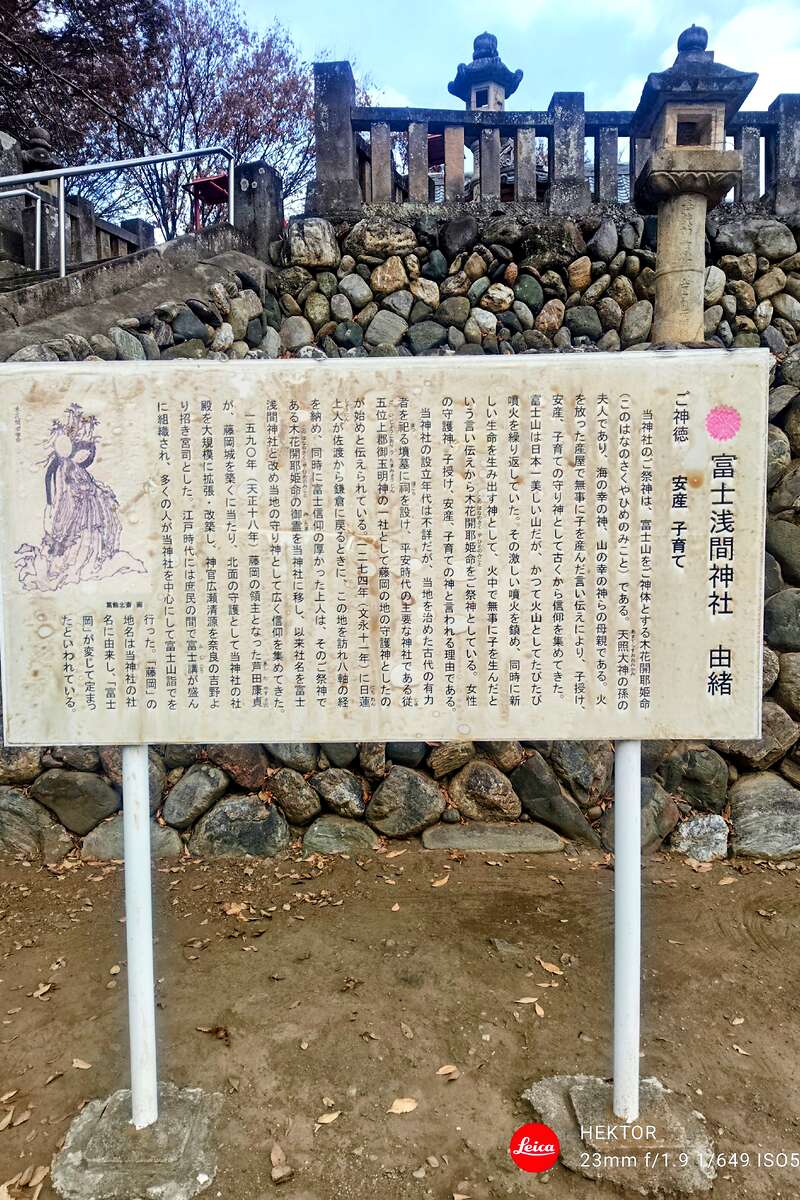 富士浅間神社　由緒
ご神徳　安産 子育て
当神社のご祭神は、富士山をご神体とする木花開耶姫命
(このはなのさくやひめのみこと)である。天照大神の孫の
夫人であり、海の幸の神、山の幸の神らの母親である。火
を放った産屋で無事に子を産んだ言い伝えにより、子授け、
安産、子育ての守り神として古くから信仰を集めてきた。
富士山は日本一美しい山だが、かつて火山としてたびたび
噴火を繰り返していた。その激しい噴火を鎮め、同時に新
しい生命を生み出す神として、火中で無事に子を生んだと
いう言い伝えから木花開耶姫命をご祭神としている。女性
の守護神、子授け、安産、子育ての神と言われる理由である。
当神社の設立年代は不詳だが、当地を治めた古代の有力
者を祀る墳墓に祠を設け、平安時代の主要な神社である従
五位上郡御玉明神の一社として藤岡の地の守護神としたの
が始めと伝えられている。一二七四年(文永十一年)に日蓮
上人が佐渡から鎌倉に戻るときに、この地を訪れ八軸の経
を納め、同時に富士信仰の厚かった上人は、そのご祭神で
ある木花開耶姫命の御霊を当神社に移し、以来社名を富士
浅間神社と改め当地の守り神として広く信仰を集めてきた。
一五九〇年(天正十八年)藤岡の領主となった芦田康貞
が、藤岡城を築くに当たり、北面の守護として当神社の社
殿を大規模に拡張・改築し、神官広瀬清源を奈良の吉野よ
り招き宮司とした。江戸時代には庶民の間で富士講が盛ん
に組織され、多くの人が当神社を中心にして富士山詣でを
行った。「藤岡」の
地名は当神社の社
名に由来し、「富士
岡」が変じて定まっ
たといわれている。
画 葛飾北斎
Leica
HEKTOR
23mm f/1.9 1/649 ISO5